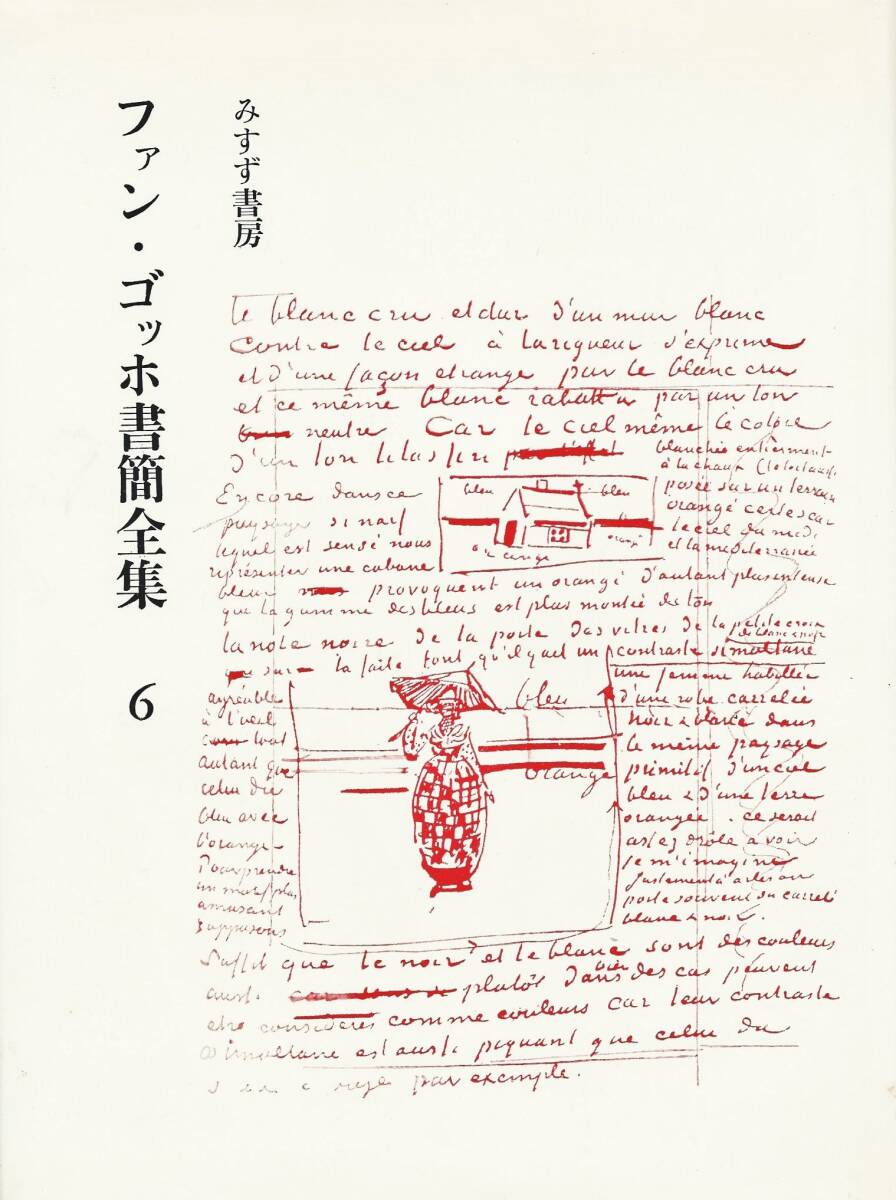 みすず書房
ファン・ゴッホ書簡全集 6
le blanc cru et dur d'un mur blanc
contre le ciel à la rigueur s'exprime
et d'une façon etrange par le blanc cru
et ce même blanc rabattu par un ton
neutre Car le ciel même le colore
d'un ton lilas fin
blanchie entierment
à la chaux
posée sur un terrain
orangé certes car
le ciel du midi
et la mediterranée
Encore dans ce
paysage si naif
lequel est sensé nous
représenter une cabane
bleu
bleu
orange
orangé
bleu provoquent un orangé d'autant plus intense
que la gamme des bleus est plus montée de ton
la note noire de la porte des vitres de la petite croix
de blanc & noir
sur le faite font qu'il y ait un contraste simultané
agréable
à l'oeil
tout
autant que
celui du
bleu avec
l'orangé
Pour prendre
un motif plus
amusant
supposons
bleu
orange
une femme habillée
d'une robe carrelée
noir & blanc dans
le même paysage
primitif d'un ciel
bleu & d'une terre
orangée. ce serait
assez drôle a voir
je m'imagine
Justement à arles on
porte souvent du carrelé
blanc & noir.
Suffit que le noir et le blanc sont des couleurs
aussi plutôt dans bien des cas peuvent
etre considerés comme couleurs car leur contraste
simultane est aussi piquant que celui du
rouge par exemple.